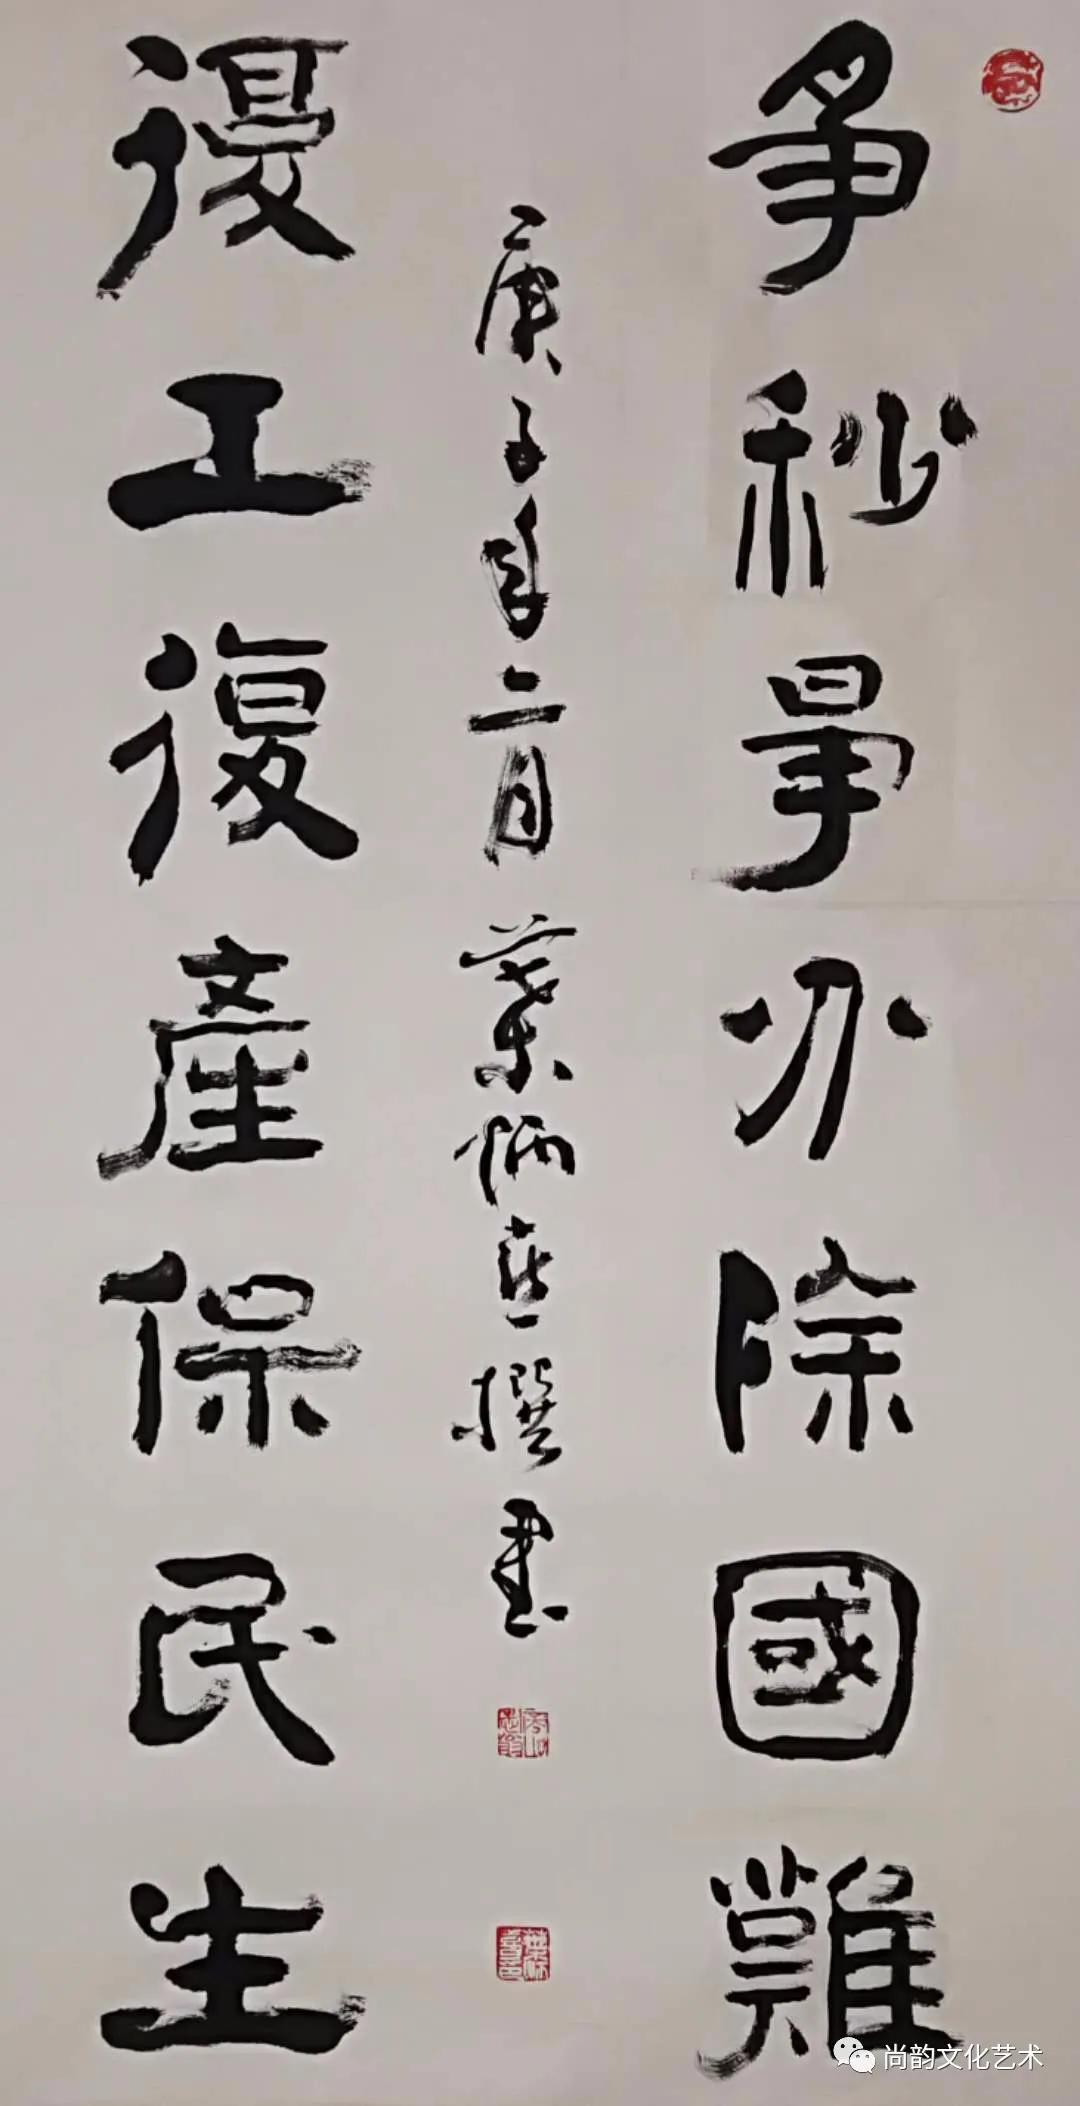 爭秒爭分除國難
復工復產保民生
庚子年二月葉炳燕撰書
尚韵文化艺术